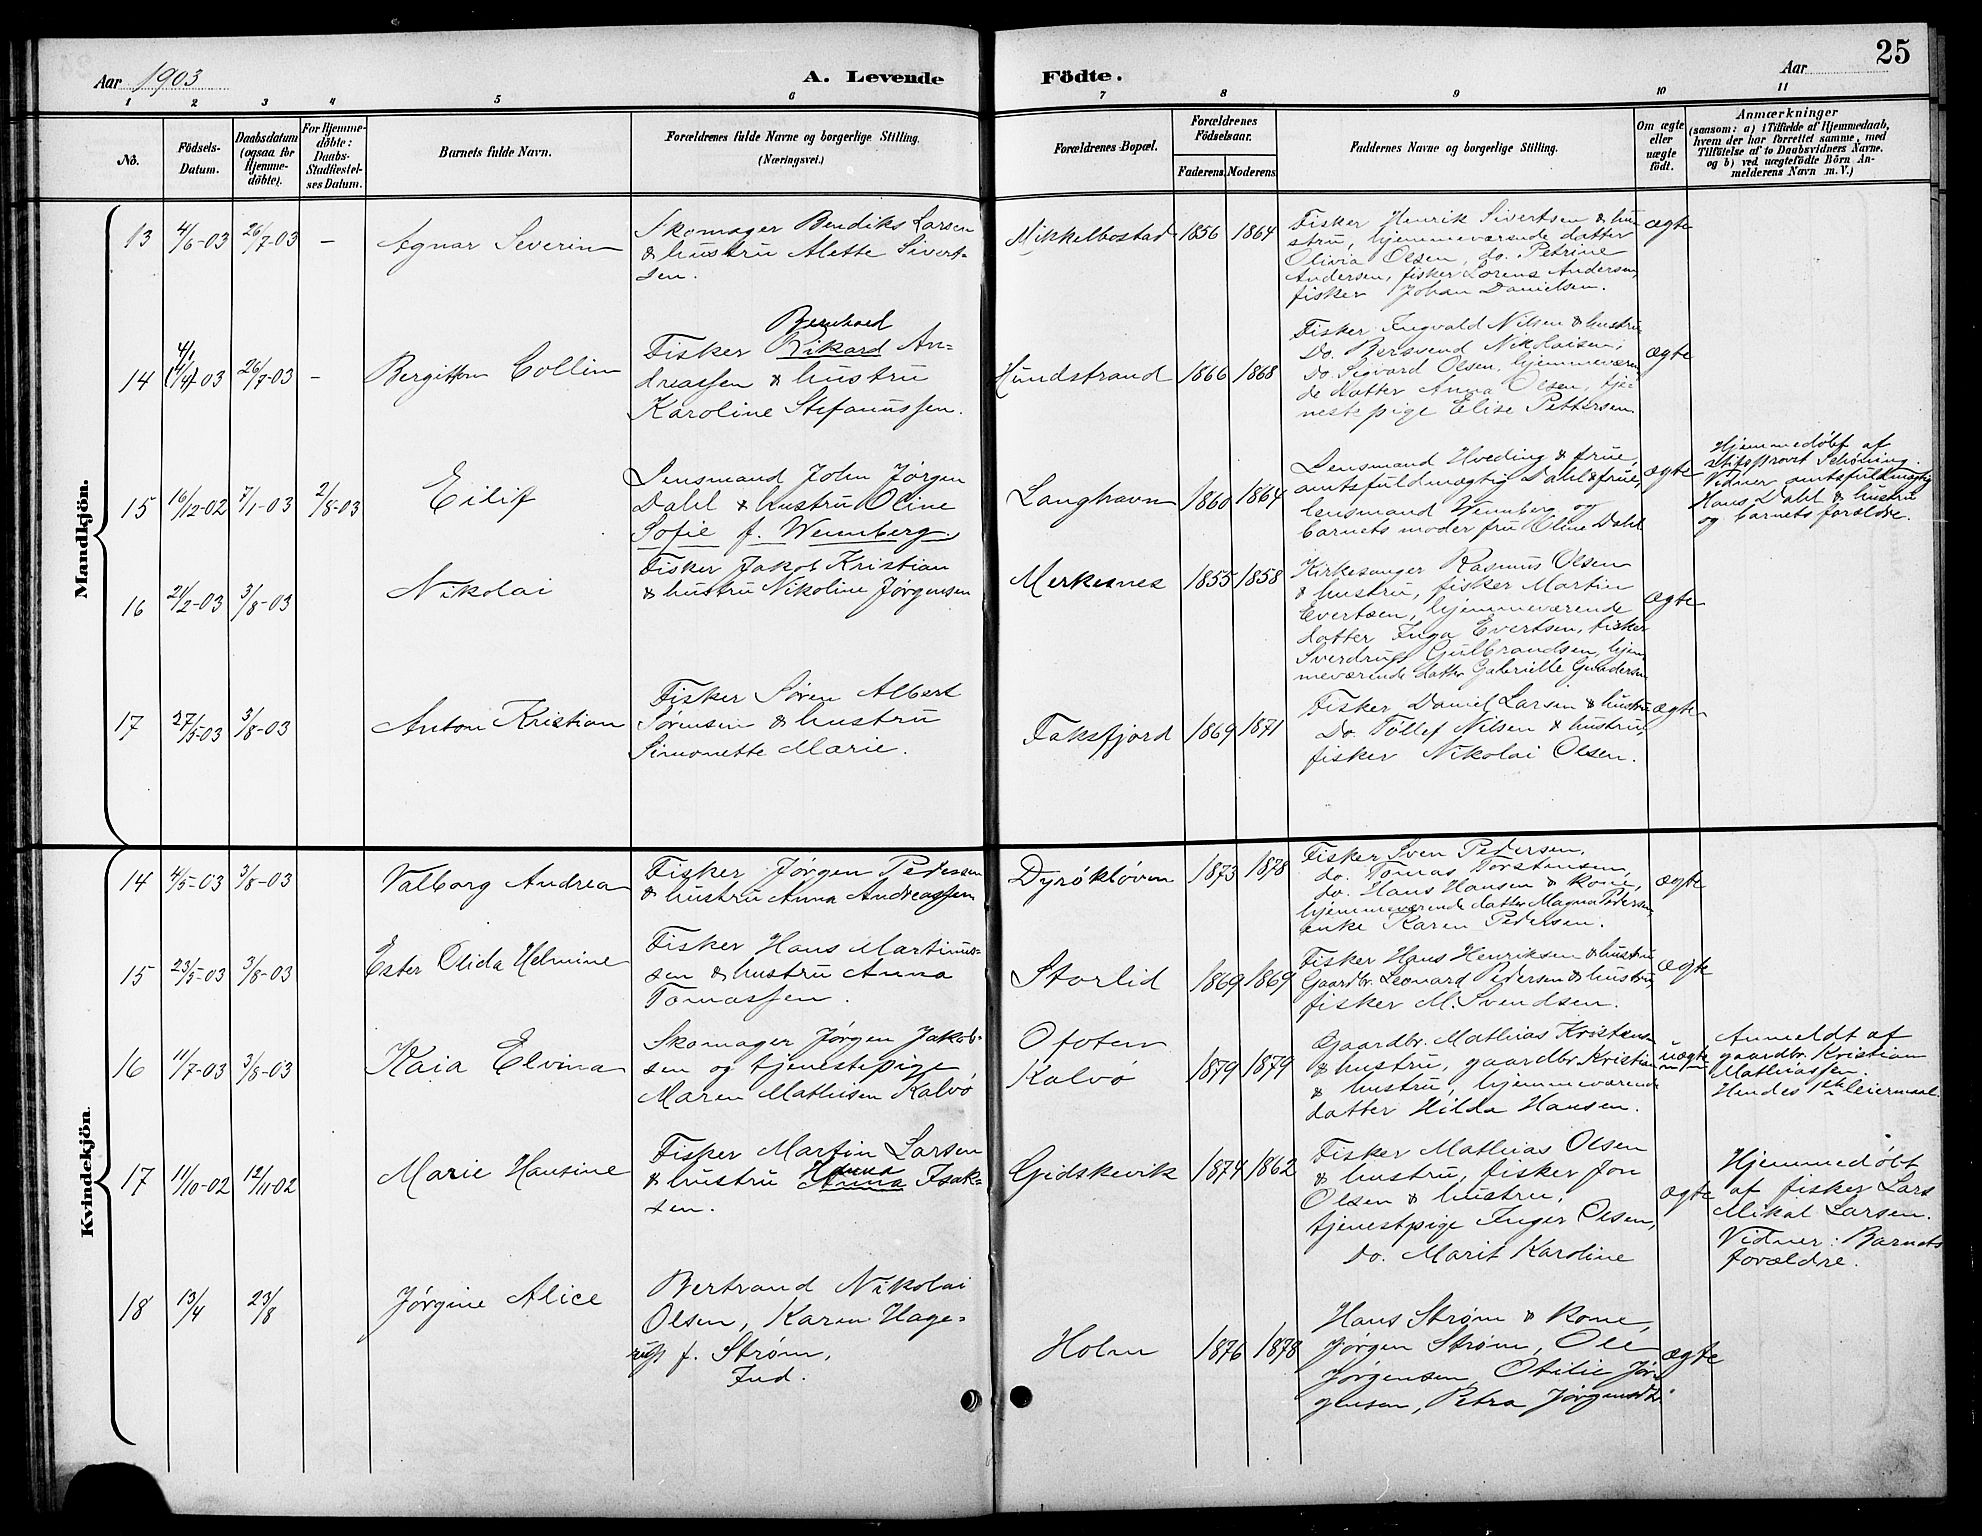 Aar 1903
A. Levende Födte.
Aar
25
1 2 3 4 5 6 7 8 9 10 11
No.
Födsels-
Datum.
Daabsdatum
(ogsaa for
Hjemme-
döbte).
For Hjemme-
döbte:
Daabs-
Stadfæstel-
ses Datum.
Barnets fulde Navn.
Forældrenes fulde Navne og borgerlige Stilling.
(Næringsvei.)
Forældrenes Bopæl.
Forældrenes
Födselsaar.
Faderens. Moderens.
Faddernes Navne og borgerlige Stilling.
Om ægte
eller
uægte
födt.
Anmærkninger
(saasom: a) i Tilfælde af Hjemmedaab,
hvem der har forrettet samme, med
Tilföielse af to Daabsvidners Navne.
og b) ved uægtefödte Börn An-
melderens Navn m. V.)
Mandkjön.
13 4/6-03 26/7-03 - Agnar Severin
Skomager Bendiks Larsen
& hustru Alette Sivert-
sen.
Mikkelbostad 1856 1864
Fisker Henrik Sivertsen & hu-
stru, hjemmeværende datter
Olivia Olsen, do. Petrine
Andersen, fisker Lorens Andersen,
fisker Johan Danielsen.
ægte
14 4/1 (4/4)-03 26/7-03 - Bergitton Collin
Bernhard
Fisker Rikard An-
dreassen & hustru
Karoline Stefanussen.
Hundstrand 1866 1868
Fisker Ingvald Nilsen & hustru
Do. Bersvend Nikolaisen,
Do. Sigvard Olsen, hjemmeværen
de datter Anna Olsen, tje-
nestepige Elise Pettersen.
ægte
15 16/12-02 7/1-03 2/8-03 Eilif
Lensmand John Jørgen
Dahl & hustru Oline
Sofie f. Wennberg.
Langhavn 1860 1864
Lensmand Hveding & frue,
amtsfuldmægtig Dahl & frue,
lensmand Wennberg og
barnets moder fru Oline Dahl
ægte
Hjemmedøbt af
stiftsprovst Schøning.
Vidner amtsfuldmægtig
Hans Dahl & hustru
og barnets forældre.
16 21/2-03 3/8-03 Nikolai
Fisker Jakob Kristian
& hustru Nikoline Jørgensen
Merkesnes 1855 1858
Kirkesanger Rasmus Olsen
& hustru, fisker Martin
Evertsen, hjemmeværende
datter Inga Evertsen, fisker
Sverdrup Gulbrandsen, hjem
meværende datter Gabrielle
ægte
17 27/5-03 3/8-03 Anton Kristian
Fisker Søren Albert
Sørensen & hustru
Simonette Marie.
Faksfjord 1869 1871
Fisker Daniel Larsen & hustru
Do. Tollef Nilsen & hustru,
fisker Nikolai Olsen.
ægte
Kvindekjön.
14 4/5-03 3/8-03 Valborg Andrea
Fisker Jørgen Pedersen
& hustru Anna Andreassen
Dyrökløven 1873 1878
Fisker Sven Pedersen,
do. Tomas Torstensen,
do. Hans Hansen & kone,
hjemmeværende datter Magna Pedersen,
enke Karen Pedersen.
ægte
15 23/5-03 3/8-03 Ester Olida Helmine
Fisker Hans Martinus-
sen & hustru Anna
Tomassen.
Storlid 1869 1869
Fisker Hans Henriksen & hustru
Gaardbr. Leonard Pedersen & hustru,
fisker M. Svendsen.
ægte
16 11/7-03 3/8-03 Kaia Elvina
Skomager Jørgen Jakob-
sen og tjenestepige
Maren Mathisen Kalvö
Ofoten
Kalvö 1879 1879
Gaardbr. Mathias Kristensen
& hustru, gaardbr. Kristian
& hustru, hjemmeværende
datter Hilda Hansen.
uægte
Anmeldt af
gaardbr. Kristian
Mathiassen.
Hendes 1ste leiermaal.
17 11/10-02 12/11-02 Marie Hansine
Fisker Martin Larsen
& hustru Hanna Anna Isak-
sen.
Gidskevik 1874 1862
Fisker Mathias Olsen
& hustru, fisker Jon
Olsen & hustru,
tjenestpige Inger Olsen,
do. Marit Karoline
ægte
Hjemmedøbt
af fisker Lars
Mikal Larsen.
Vidner: Barnets
forældre.
18 13/4 23/8 Jørgine Alice
Bertrand Nikolai
Olsen, Karen Hage-
rup f. Strøm,
Ind.
Holm 1876 1878
Hans Strøm & kone,
Jørgen Strøm, Ole
Jørgensen, Otilie Jør-
gensen, Petra
ægte